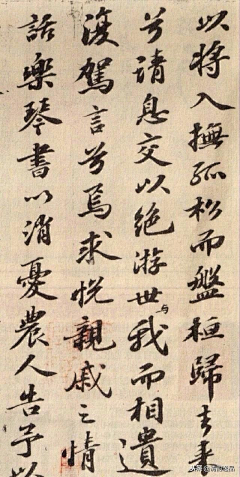 以将入撫孤松而盤桓歸去来
兮請息交以絶游世与我而相遺
復駕言兮焉求悅親戚之情
話樂琴書以消憂農人告予以